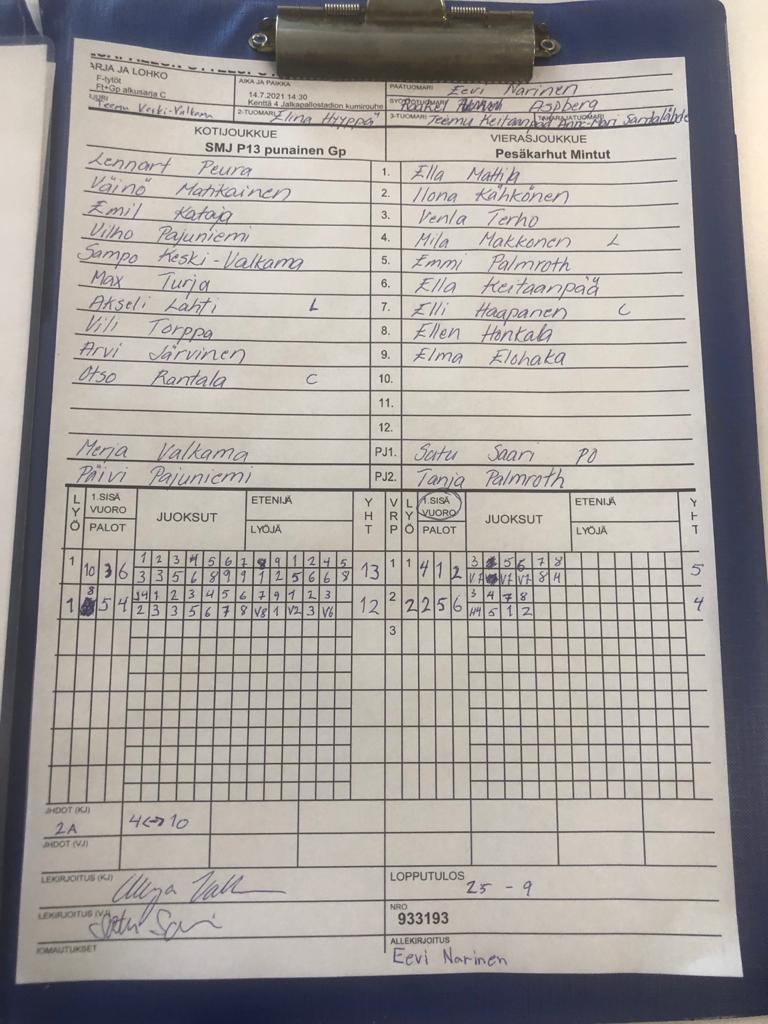 ARJA JA LOHKO
F-tytöt
Ft+Gp alkusarja C
AIKA JA PAIKKA
14.7.2021 14:30
Kenttä 4 Jalkapallostadion kumirouhe
PÄÄTUOMARI Eevi Narinen
SYÖTTÖTUOMARI Raakel Aspberg
Teemu Keski-Valkama
2-TUOMARI Elina Hyyppä
3-TUOMARI Teemu Keitaanpää Anni-Mari Sandalähde
KOTIJOUKKUE VIERASJOUKKUE
SMJ P13 punainen Gp Pesäkarhut Mintut
Lennart Peura 1. Ella Mattila
Väinö Matikainen 2. Ilona Kähkönen
Emil Kataja 3. Venla Terho
Vilho Pajuniemi 4. Mila Makkonen L
Sampo Keski-Valkama 5. Emmi Palmroth
Max Turja 6. Ella Keitaanpää
Akseli Lahti L 7. Elli Haapanen C
Vili Torppa 8. Ellen Honkala
Arvi Järvinen 9. Elma Elohaka
Otso Rantala C 10.
11.
12.
Merja Valkama PJ1. Satu Saari PO
Päivi Pajuniemi PJ2. Tanja Palmroth
LYÖ 1.SISÄ VUORO PALOT JUOKSUT ETENIJÄ LYÖJÄ YHT VRP LYÖ 1.SISÄ VUORO PALOT JUOKSUT ETENIJÄ LYÖJÄ YHT
1 10 3 6 1 2 3 4 5 6 7 8 9 1 2 4 5 13 1 1 4 1 2 3 5 6 7 8 5
3 3 5 6 8 9 9 1 2 5 6 6 8 V7 V7 V7 8 4
1 8 5 4 J4 1 2 3 4 5 6 7 9 1 2 3 12 2 2 2 5 6 3 4 7 8 4
2 3 3 5 6 7 8 V8 1 V2 3 V6 H4 5 1 2
3
JHDOT (KJ)
2A 4↔10
JHDOT (VJ)
LEKIRJOITUS (KJ)
LOPPUTULOS
25 - 9
LEKIRJOITUS (VJ)
NRO
933193
OMAUTUKSET
ALLEKIRJOITUS
Eevi Narinen